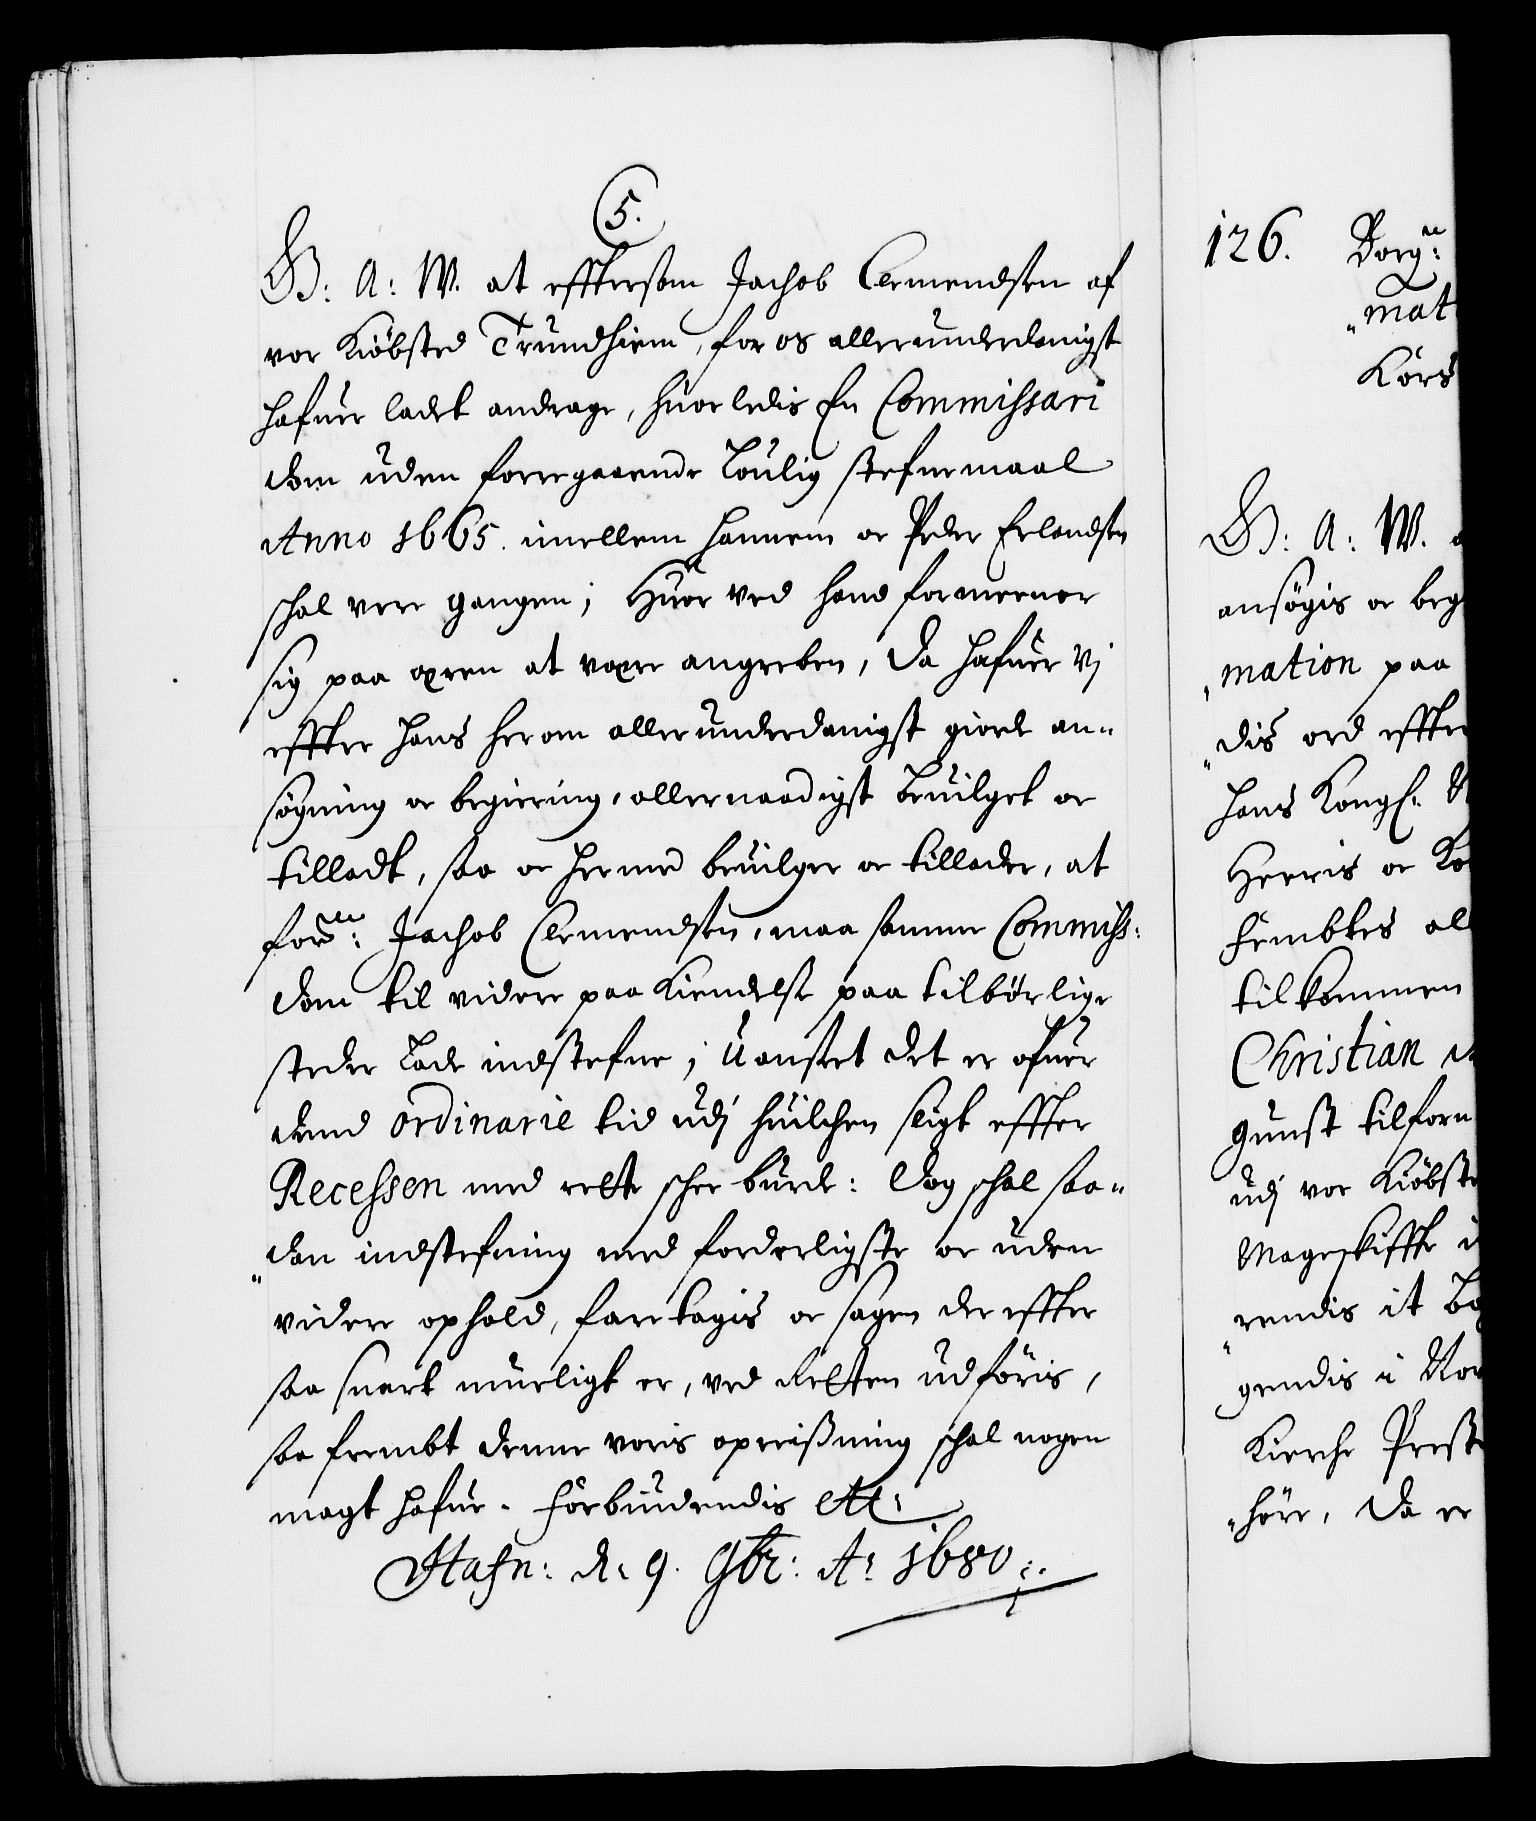 5.
G: A: W. at efftersom Jachob Clemendsen af
vor Kiöbsted Trundhiem, for os allerunderdanigst
hafuer ladet andrage, huorledis En Commissari
dom uden foregaaende Loulig stefnemaal
Anno 1665. imellem hannem oc Peder Erlandsen
schal vere gangen; Huor ved hand formeener
sig paa æren at være angreben, Da hafuer Vi
effter hans herom allerunderdanigst giorde an-
søgning oc begiering, allernaadigst beuilget oc
tilladt, saa oc hermed beuilger oc tillader, at
forne: Jachob Clemendsen, maa samme Commiss:
dom til videre paakiendelse paa tilbørlige
steder Lade indstefne; Uanseet det er ofuer
dend ordinarie tid udj huilchen sligt effter
Recessen med rette schee burde: Dog schal saa-
dan indstefning med forderligste oc uden
videre ophold, foretagis oc sagen der effter
saa snart mueligt er, ved Retten udföris,
saa frembt denne voris opreisning schal nogen
magt hafue. Forbiudendis Etc:
Hafn: d. 9. 9br: A: 1680.
126. Borg:
mat
Kors
G: A: W.
ansøgis oc beg
mation paa
dis ord effter
hans Kongl.
Herris oc Ko
fembtes al
tilkommen
Christian
gunst tilforn
udj vor Kiöbste
Mageskiffte
rendis it
gendis i Nor
Kierche Prest
höre, Da er